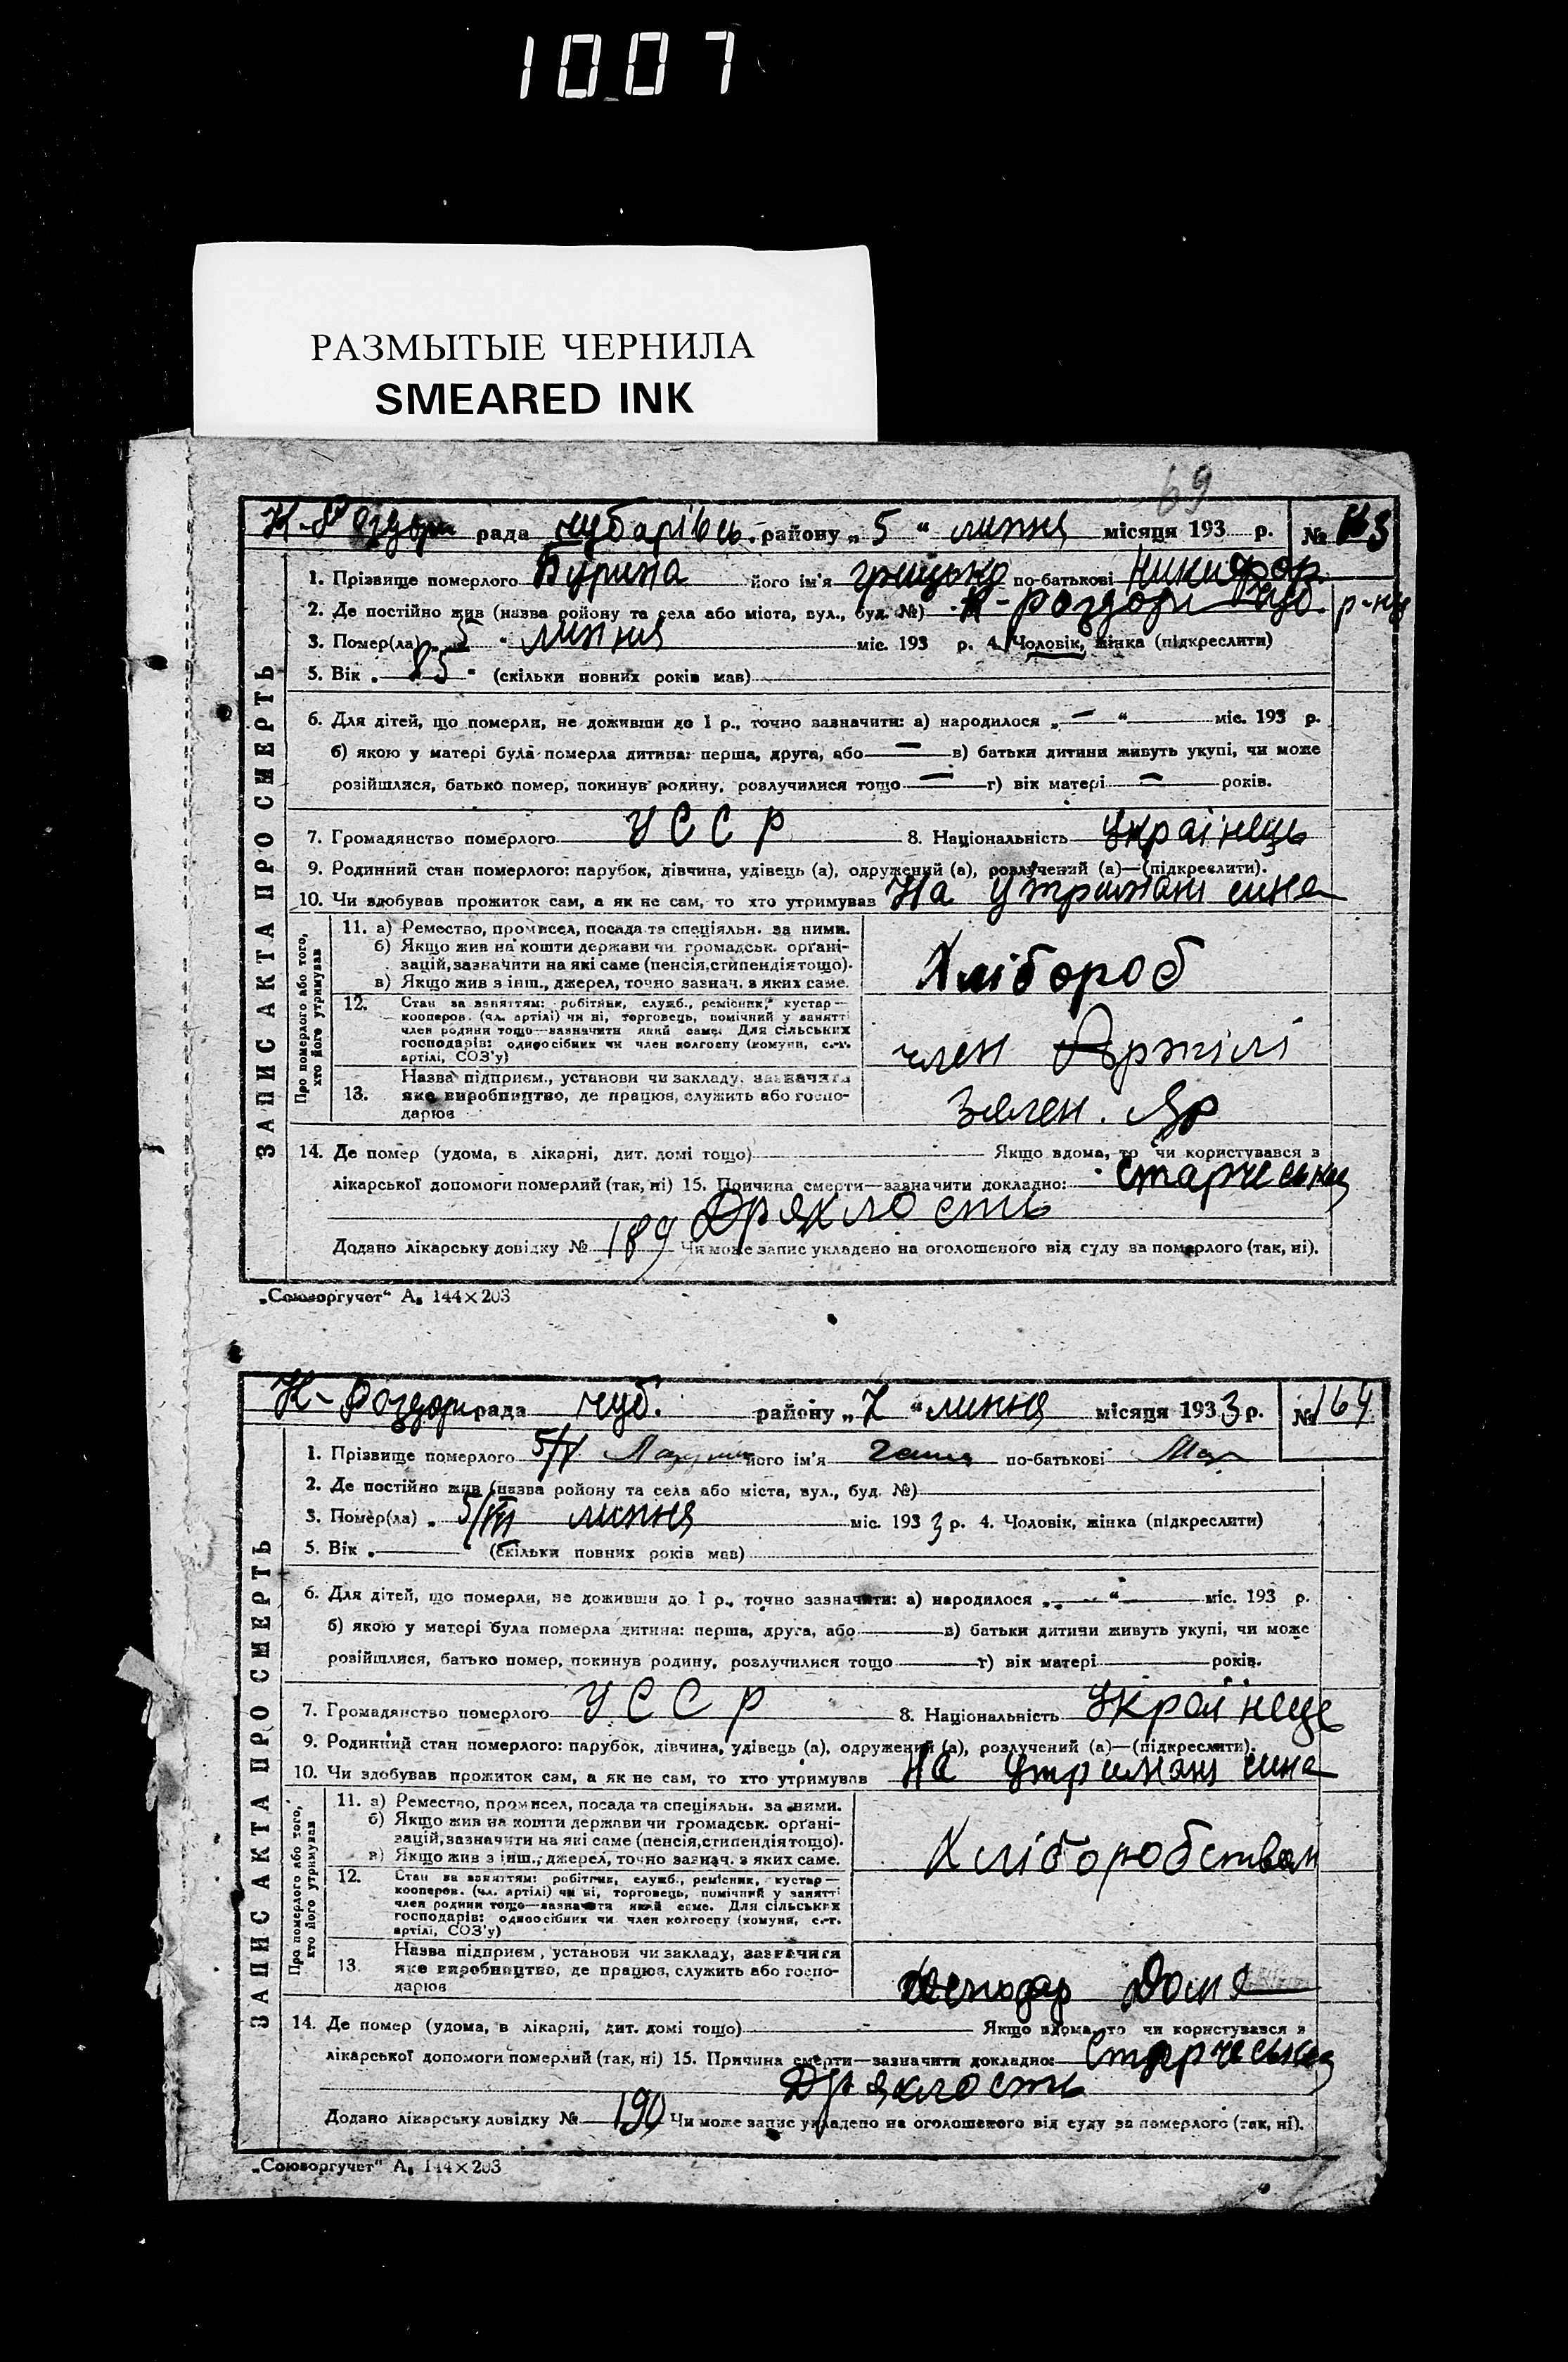 1007
РАЗМЫТЫЕ ЧЕРНИЛА
SMEARED INK
69
Н-Роздори рада чубарівсь. району „5“ липня місяця 193 р. № 163
1. Прізвище померлого Бурина його ім'я грицько по-батькові Никифор.
2. Де постійно жив (назва ройону та села або міста, вул., буд. №) Н-роздори Чуб. р-ну
3. Помер(ла) „5“ липня міс. 193 р. 4. Чоловік, жінка (підкреслити)
5. Вік „85“ (скільки повних років мав)
6. Для дітей, що померли, не доживши до 1 р., точно зазначити: а) народилося „—“ міс. 193 р.
б) якою у матері була померла дитина: перша, друга, або — в) батьки дитини живуть укупі, чи може
розійшлися, батько помер, покинув родину, розлучилися тощо — г) вік матері — років.
7. Громадянство померлого УССР 8. Національність Українець
9. Родинний стан померлого: парубок, дівчина, удівець (а), одружений (а), розлучений (а)—(підкреслити).
10. Чи здобував прожиток сам, а як не сам, то хто утримував На утримані сина
ЗАПИС АКТА ПРО СМЕРТЬ
Про померлого або того, хто його утримував
11. а) Ремество, промисел, посада та спеціяльн. за ними.
б) Якщо жив на кошти держави чи громадськ. орґані-
зацій, зазначити на які саме (пенсія, стипендія тощо).
в) Якщо жив з інш., джерел, точно зазнач. з яких саме.
Хлібороб
12. Стан за заняттям: робітник, служб., ремісник, кустар—
кооперов. (чл. артілі) чи ні, торговець, помічний у занятті
член родини тощо—зазначити який саме. Для сільських
господарів: одноосібник чи член колгоспу (комуни, с.-г.
артілі, СОЗ'у)
член Артілі
13. Назва підприєм., установи чи закладу, зазначити
яке виробництво, де працює, служить або госпо-
дарює
Зелен. Яр
14. Де помер (удома, в лікарні, дит. домі тощо) Якщо вдома, то чи користувався з
лікарської допомоги померлий (так, ні) 15. Причина смерти—зазначити докладно: старческая
Дряхлость
Додано лікарську довідку № 189 Чи може запис укладено на оголошеного від суду за померлого (так, ні).
„Союзоргучет“ А₅ 144×203
Н-Роздори рада чуб. району „7“ липня місяця 1933 р. № 164
1. Прізвище померлого його ім'я по-батькові
2. Де постійно жив (назва ройону та села або міста, вул., буд. №)
3. Помер(ла) „5/VII липня міс. 1933 р. 4. Чоловік, жінка (підкреслити)
5. Вік „ “ (скільки повних років мав)
6. Для дітей, що померли, не доживши до 1 р., точно зазначити: а) народилося „ “ міс. 193 р.
б) якою у матері була померла дитина: перша, друга, або в) батьки дитини живуть укупі, чи може
розійшлися, батько помер, покинув родину, розлучилися тощо г) вік матері років.
7. Громадянство померлого УССР 8. Національність Українець
9. Родинний стан померлого: парубок, дівчина, удівець (а), одружений (а), розлучений (а)—(підкреслити).
10. Чи здобував прожиток сам, а як не сам, то хто утримував На утримані сина
ЗАПИС АКТА ПРО СМЕРТЬ
Про померлого або того, хто його утримував
11. а) Ремество, промисел, посада та спеціяльн. за ними.
б) Якщо жив на кошти держави чи громадськ. орґані-
зацій, зазначити на які саме (пенсія, стипендія тощо).
в) Якщо жив з інш., джерел, точно зазнач. з яких саме.
Хліборобством
12. Стан за заняттям: робітник, служб., ремісник, кустар—
кооперов. (чл. артілі) чи ні, торговець, помічний у занятті
член родини тощо—зазначити який саме. Для сільських
господарів: одноосібник чи член колгоспу (комуни, с.-г.
артілі, СОЗ'у)
13. Назва підприєм., установи чи закладу, зазначити
яке виробництво, де працює, служить або госпо-
дарює
14. Де помер (удома, в лікарні, дит. домі тощо) Якщо вдома, то чи користувався з
лікарської допомоги померлий (так, ні) 15. Причина смерти—зазначити докладно: Старческая
Дряхлость
Додано лікарську довідку № 190 Чи може запис укладено на оголошеного від суду за померлого (так, ні).
„Союзоргучет“ А₅ 144×203